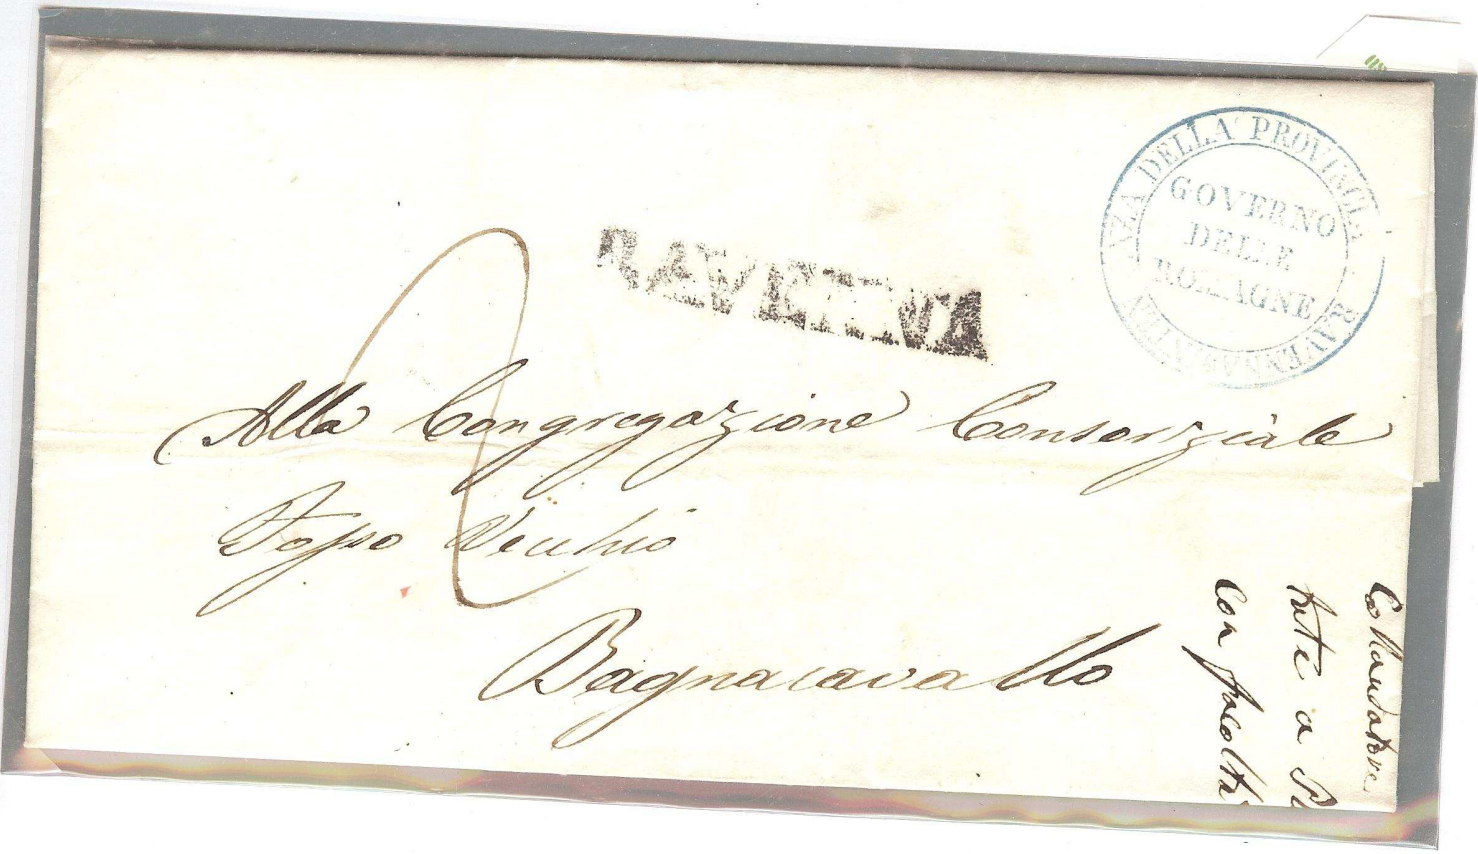 INTENDENZA DELLA PROVINCIA RAVENNA
GOVERNO
DELLE
ROMAGNE
RAVENNA
2
Alla Congregazione Consorziale
Fosso Vecchio
Bagnacavallo
Collaudatore
con facolt